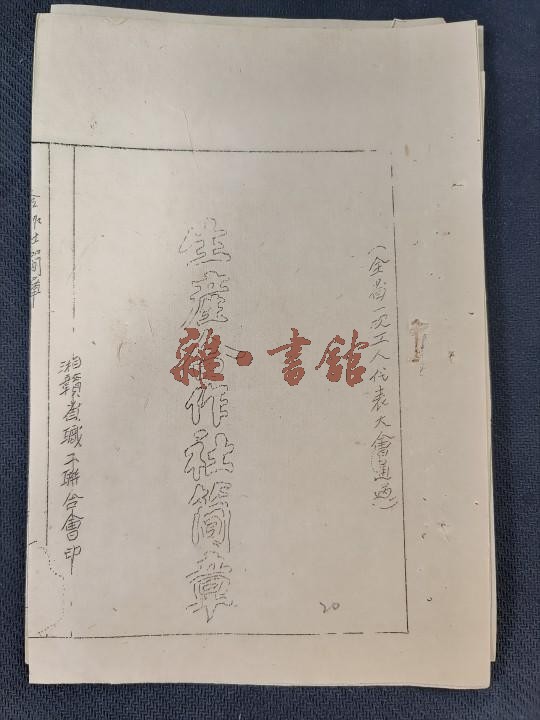 (全省一次工人代表大會通過)
生產合作社简章
湘贛省职工联合會印
合作社简章
20
雜·書館